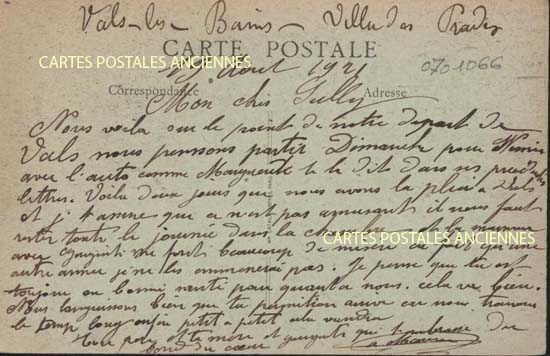 Vals-les-Bains - Villa des Prades
CARTE POSTALE
CARTES POSTALES ANCIENNES
Août 1921
0701066
Correspondance
Adresse
Mon cher
Nous voila sur le point de notre depart de
Vals nous pensons partir Dimanche pour
avec l'auto comme Marguerite te le dit dans ses précédentes
lettres. Voila deux jours que nous avons la pluie a Vals
et je t'assure que ce n'est pas amusant il nous faut
rester toute la journée dans la
CARTES POSTALES ANCIENNES
avec me font beaucoup de misere
autre année je ne les emmenerai pas. Je pense que tu est
toujours en bonne santé pour quant a nous. cela va bien.
Nous languissons bien que ta permission arrive car nous trouvons
le temps long enfin petit a petit elle viendra
Ton père et ta mère et qui t'embrasse
du cœur